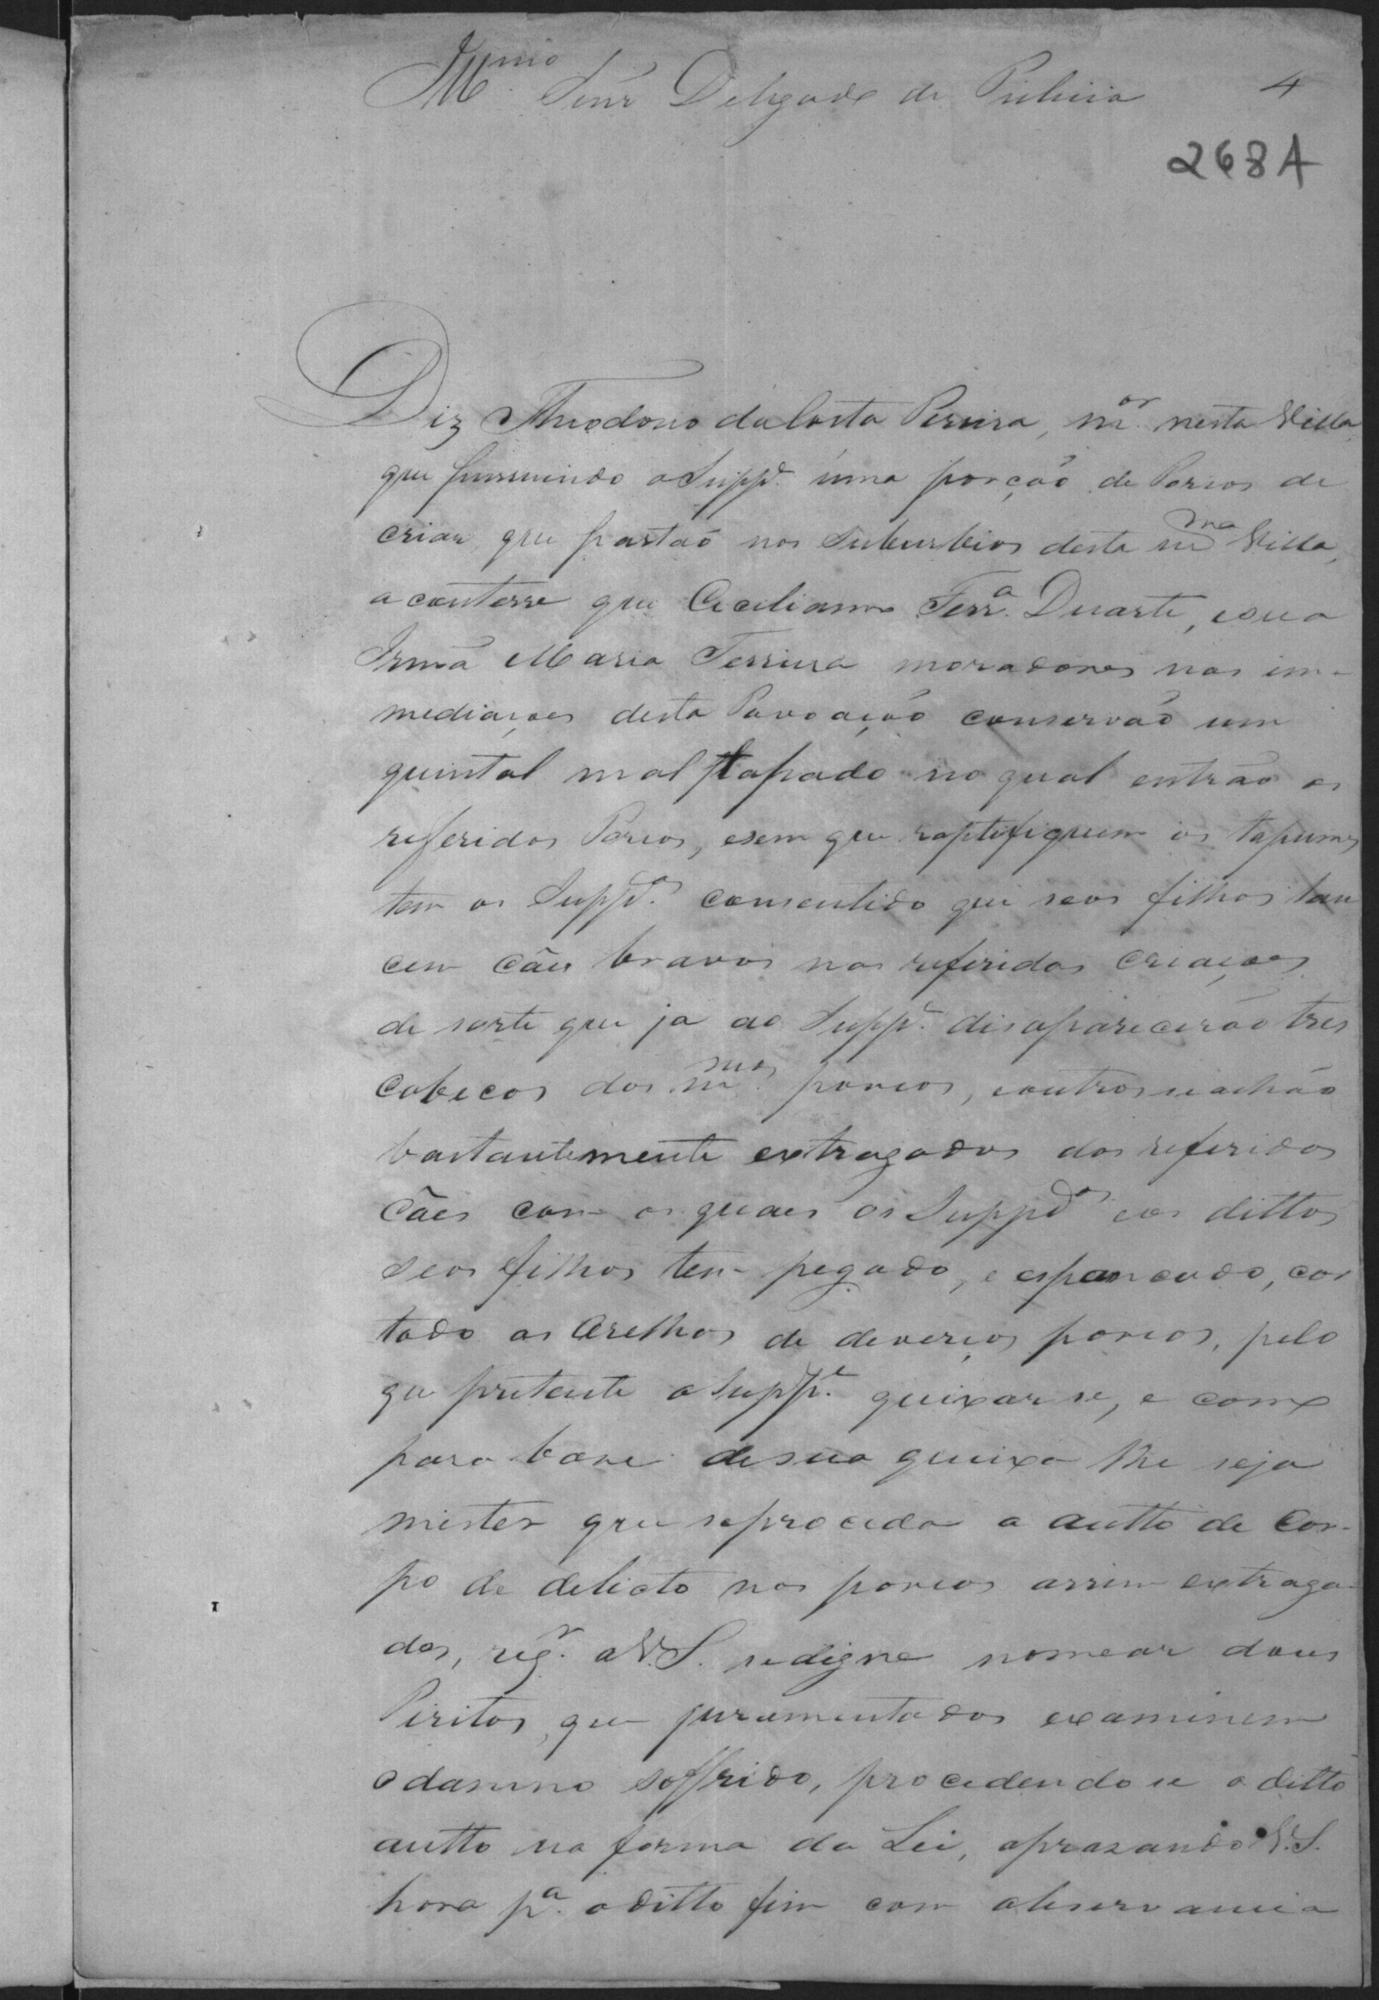 Illmo Senr Delegado de Pulicia 4
268A
Diz Theodoro da Costa Pereira, mor nesta Villa,
que pussuindo o Suppe uma porção de Porcos de
criar, que pastaõ nos suburbios desta mma Villa,
acontesse que Ceciliano Ferra Duarte, e sua
Irmã Maria Ferreira moradores nas im-
mediaçoes desta Povoaçaõ conservaõ um
quintal mal tapado no qual entraõ os
referidos Porcos, e sem que raptefiquem os tapumes
tem os Suppdos consentido que seos filhos lan
cem cães bravos nas referidas criaçoes
de sorte que ja ao Suppe disaparecerão tres
cabecas dos mmos porcos, e outros se achão
bastantemente extragados dos referidos
cães com os quaes os Suppdos e os dittos
seos filhos tem pegado, e espancado, cor
tado as Orelhas de deverços porcos, pelo
que pretente o Suppe queixar se, e como
para base de sua queixa lhe seja
mister que se proceda a autto de Cor-
po de delicto nos porcos assim extraga-
dos, reqr a V.S. se digne nomear dous
Piritos, que juramentados examinem
o damno soffrido, procedendo se o ditto
autto na forma da Lei, aprasando V.S.
hora pa o ditto fim com observancia